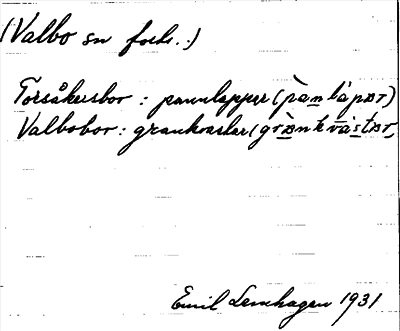 (Valbo sn forts..)
Torsåkersbor : pannlappar (pànlápar)
Valbobor : grankvastar (grànkvástar,
Emil Lenhagen 1931